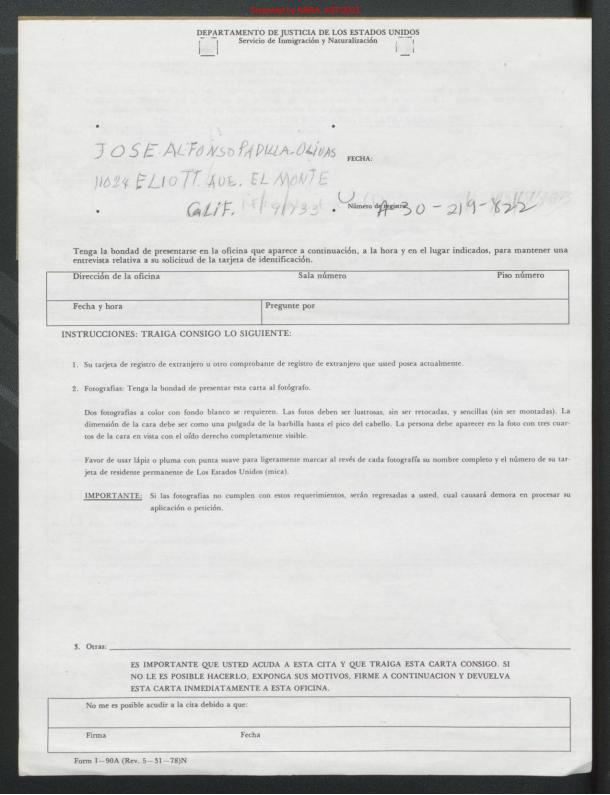 DEPARTAMENTO DE JUSTICIA DE LOS ESTADOS UNIDOS
Servicio de Inmigración y Naturalización
JOSE ALFONSO PADILLA-OLIVAS
FECHA:
11024 ELIOTT. AVE. EL MONTE
CALIF. 91733
Número de registro
A-30-219-822
Tenga la bondad de presentarse en la oficina que aparece a continuación, a la hora y en el lugar indicados, para mantener una
entrevista relativa a su solicitud de la tarjeta de identificación.
Dirección de la oficina Sala número Piso número
Fecha y hora Pregunte por
INSTRUCCIONES: TRAIGA CONSIGO LO SIGUIENTE:
1. Su tarjeta de registro de extranjero u otro comprobante de registro de extranjero que usted posea actualmente.
2. Fotografias: Tenga la bondad de presentar esta carta al fotógrafo.
Dos fotografias a color con fondo blanco se requieren. Las fotos deben ser lustrosas, sin ser retocadas, y sencillas (sin ser montadas). La
dimensión de la cara debe ser como una pulgada de la barbilla hasta el pico del cabello. La persona debe aparecer en la foto con tres cuar-
tos de la cara en vista con el oído derecho completamente visible.
Favor de usar lápiz o pluma con punta suave para ligeramente marcar al revés de cada fotografía su nombre completo y el número de su tar-
jeta de residente permanente de Los Estados Unidos (mica).
IMPORTANTE: Si las fotografias no cumplen con estos requerimientos, serán regresadas a usted, cual causará demora en procesar su
aplicación o petición.
3. Otras:
ES IMPORTANTE QUE USTED ACUDA A ESTA CITA Y QUE TRAIGA ESTA CARTA CONSIGO. SI
NO LE ES POSIBLE HACERLO, EXPONGA SUS MOTIVOS, FIRME A CONTINUACION Y DEVUELVA
ESTA CARTA INMEDIATAMENTE A ESTA OFICINA.
No me es posible acudir a la cita debido a que:
Firma Fecha
Form I-90A (Rev. 5-31-78)N